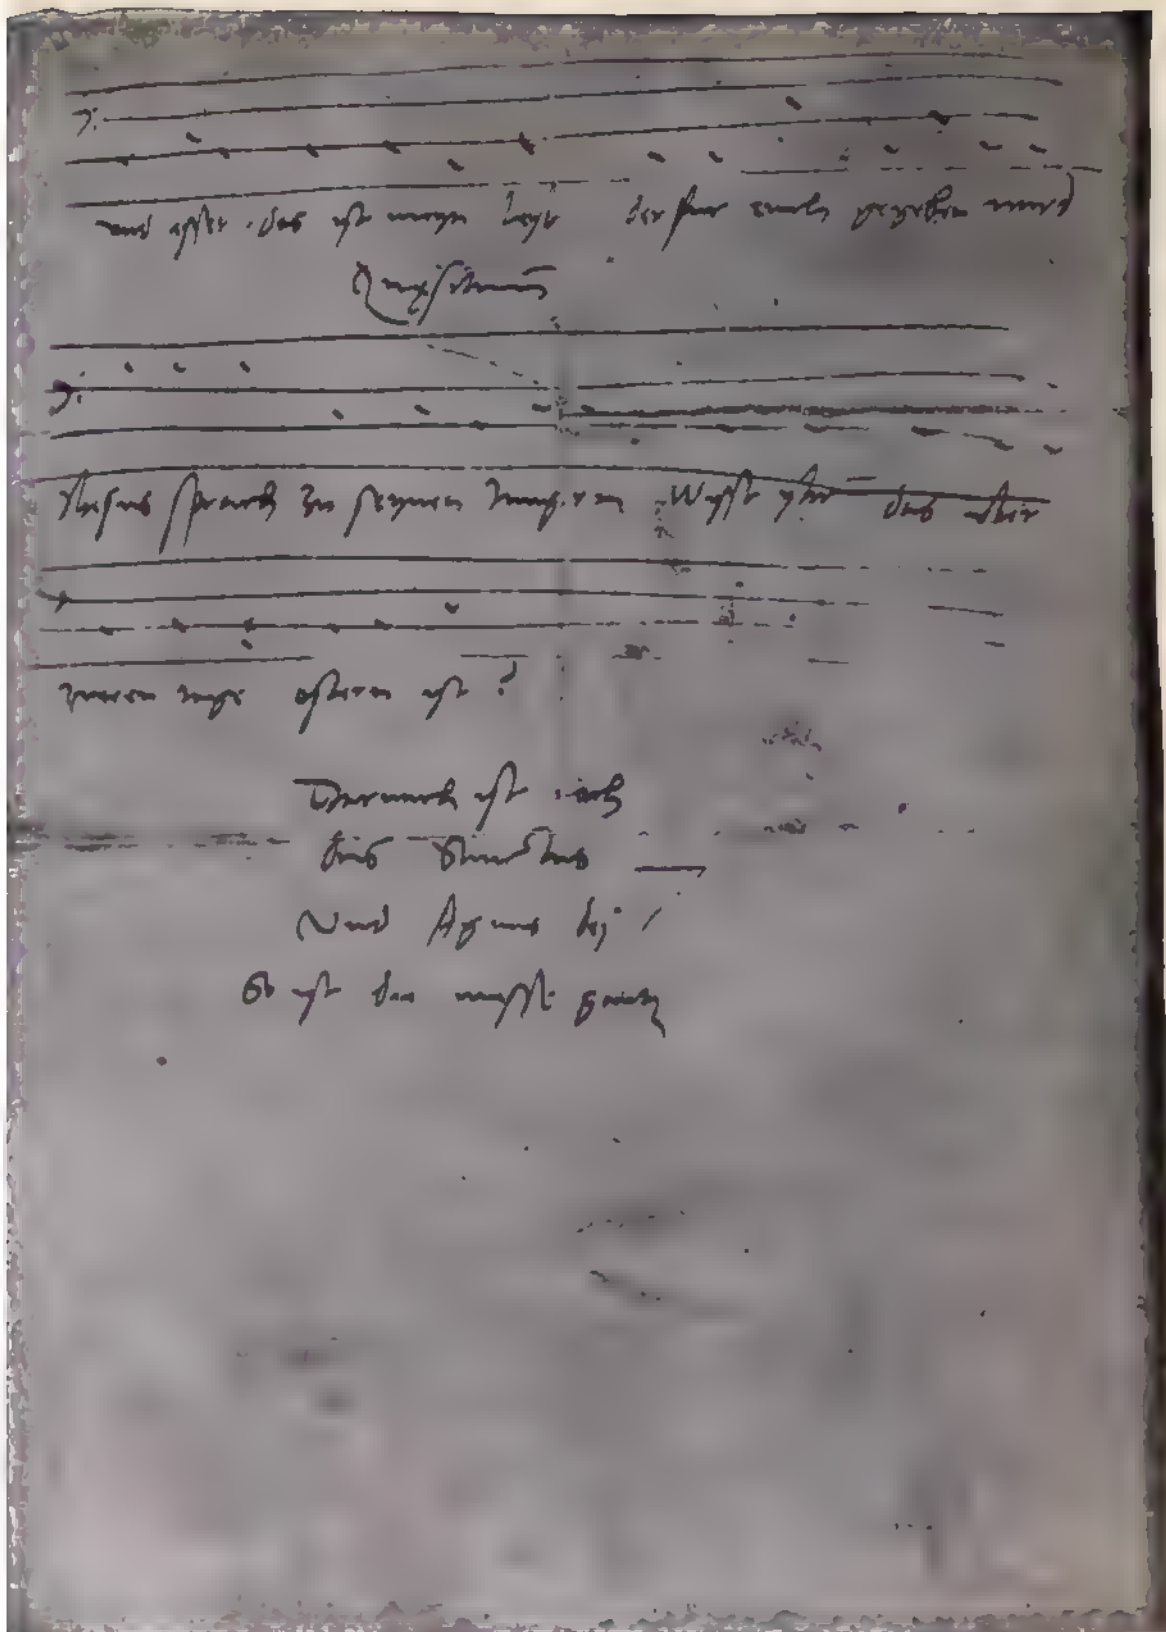 und esset das ist meyn leyb der fur euch gegeben wird
Ihesus sprach zu seynen Jungern Wysst yhr das uber
zween tage ostern ist ?
Darnach ist
das Sanctus
Und Agnus dej /
So ist die messe gantz